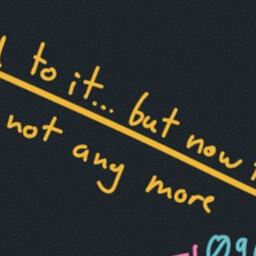 to it... but now
not any more